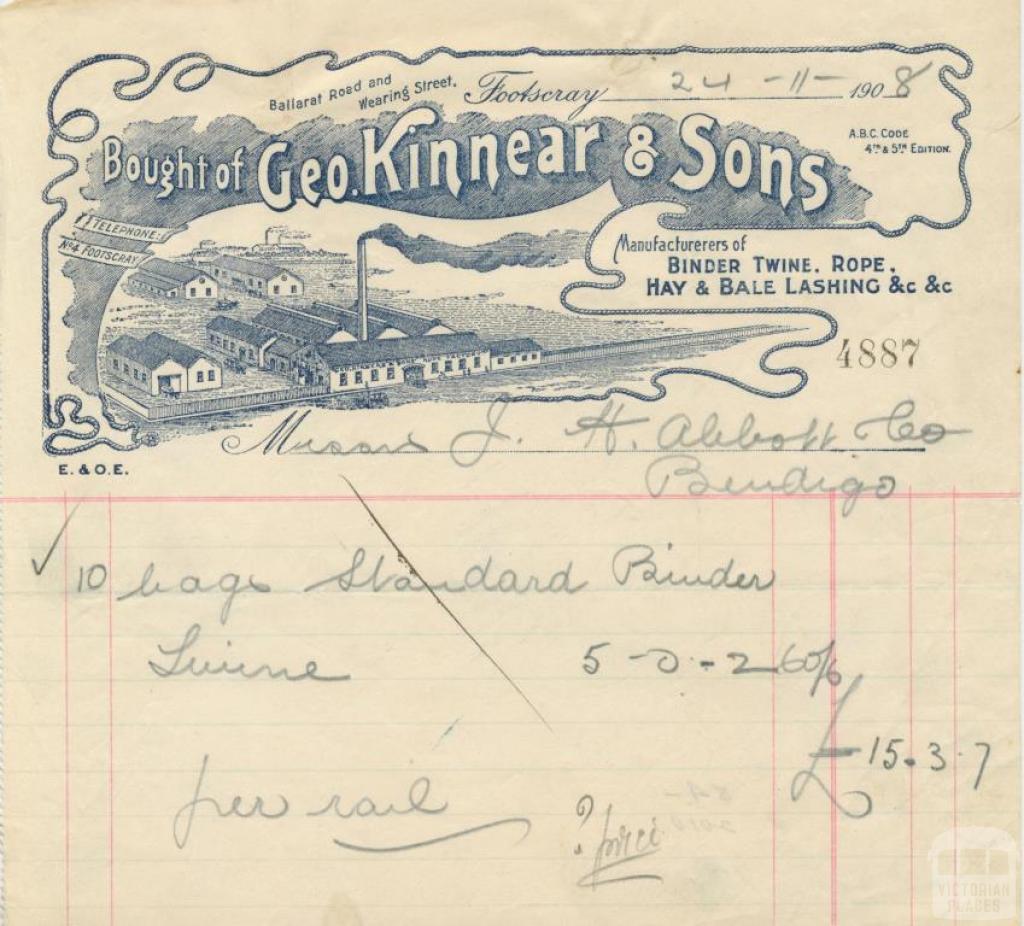 Ballarat Road and
Wearing Street.
Footscray 24 - 11 - 1908
Bought of Geo. Kinnear & Sons
A.B.C. CODE
4TH & 5TH EDITION.
TELEPHONE:
No 4 FOOTSCRAY
Manufacturerers of
BINDER TWINE. ROPE.
HAY & BALE LASHING &c &c
4887
Messrs J. H. Abbott & Co
Bendigo
E. & O.E.
✓ 10 bags Standard Binder
Twine 5 - 0 - 2 60/6
£ 15. 3. 7
per rail
? price
VICTORIAN
PLACES